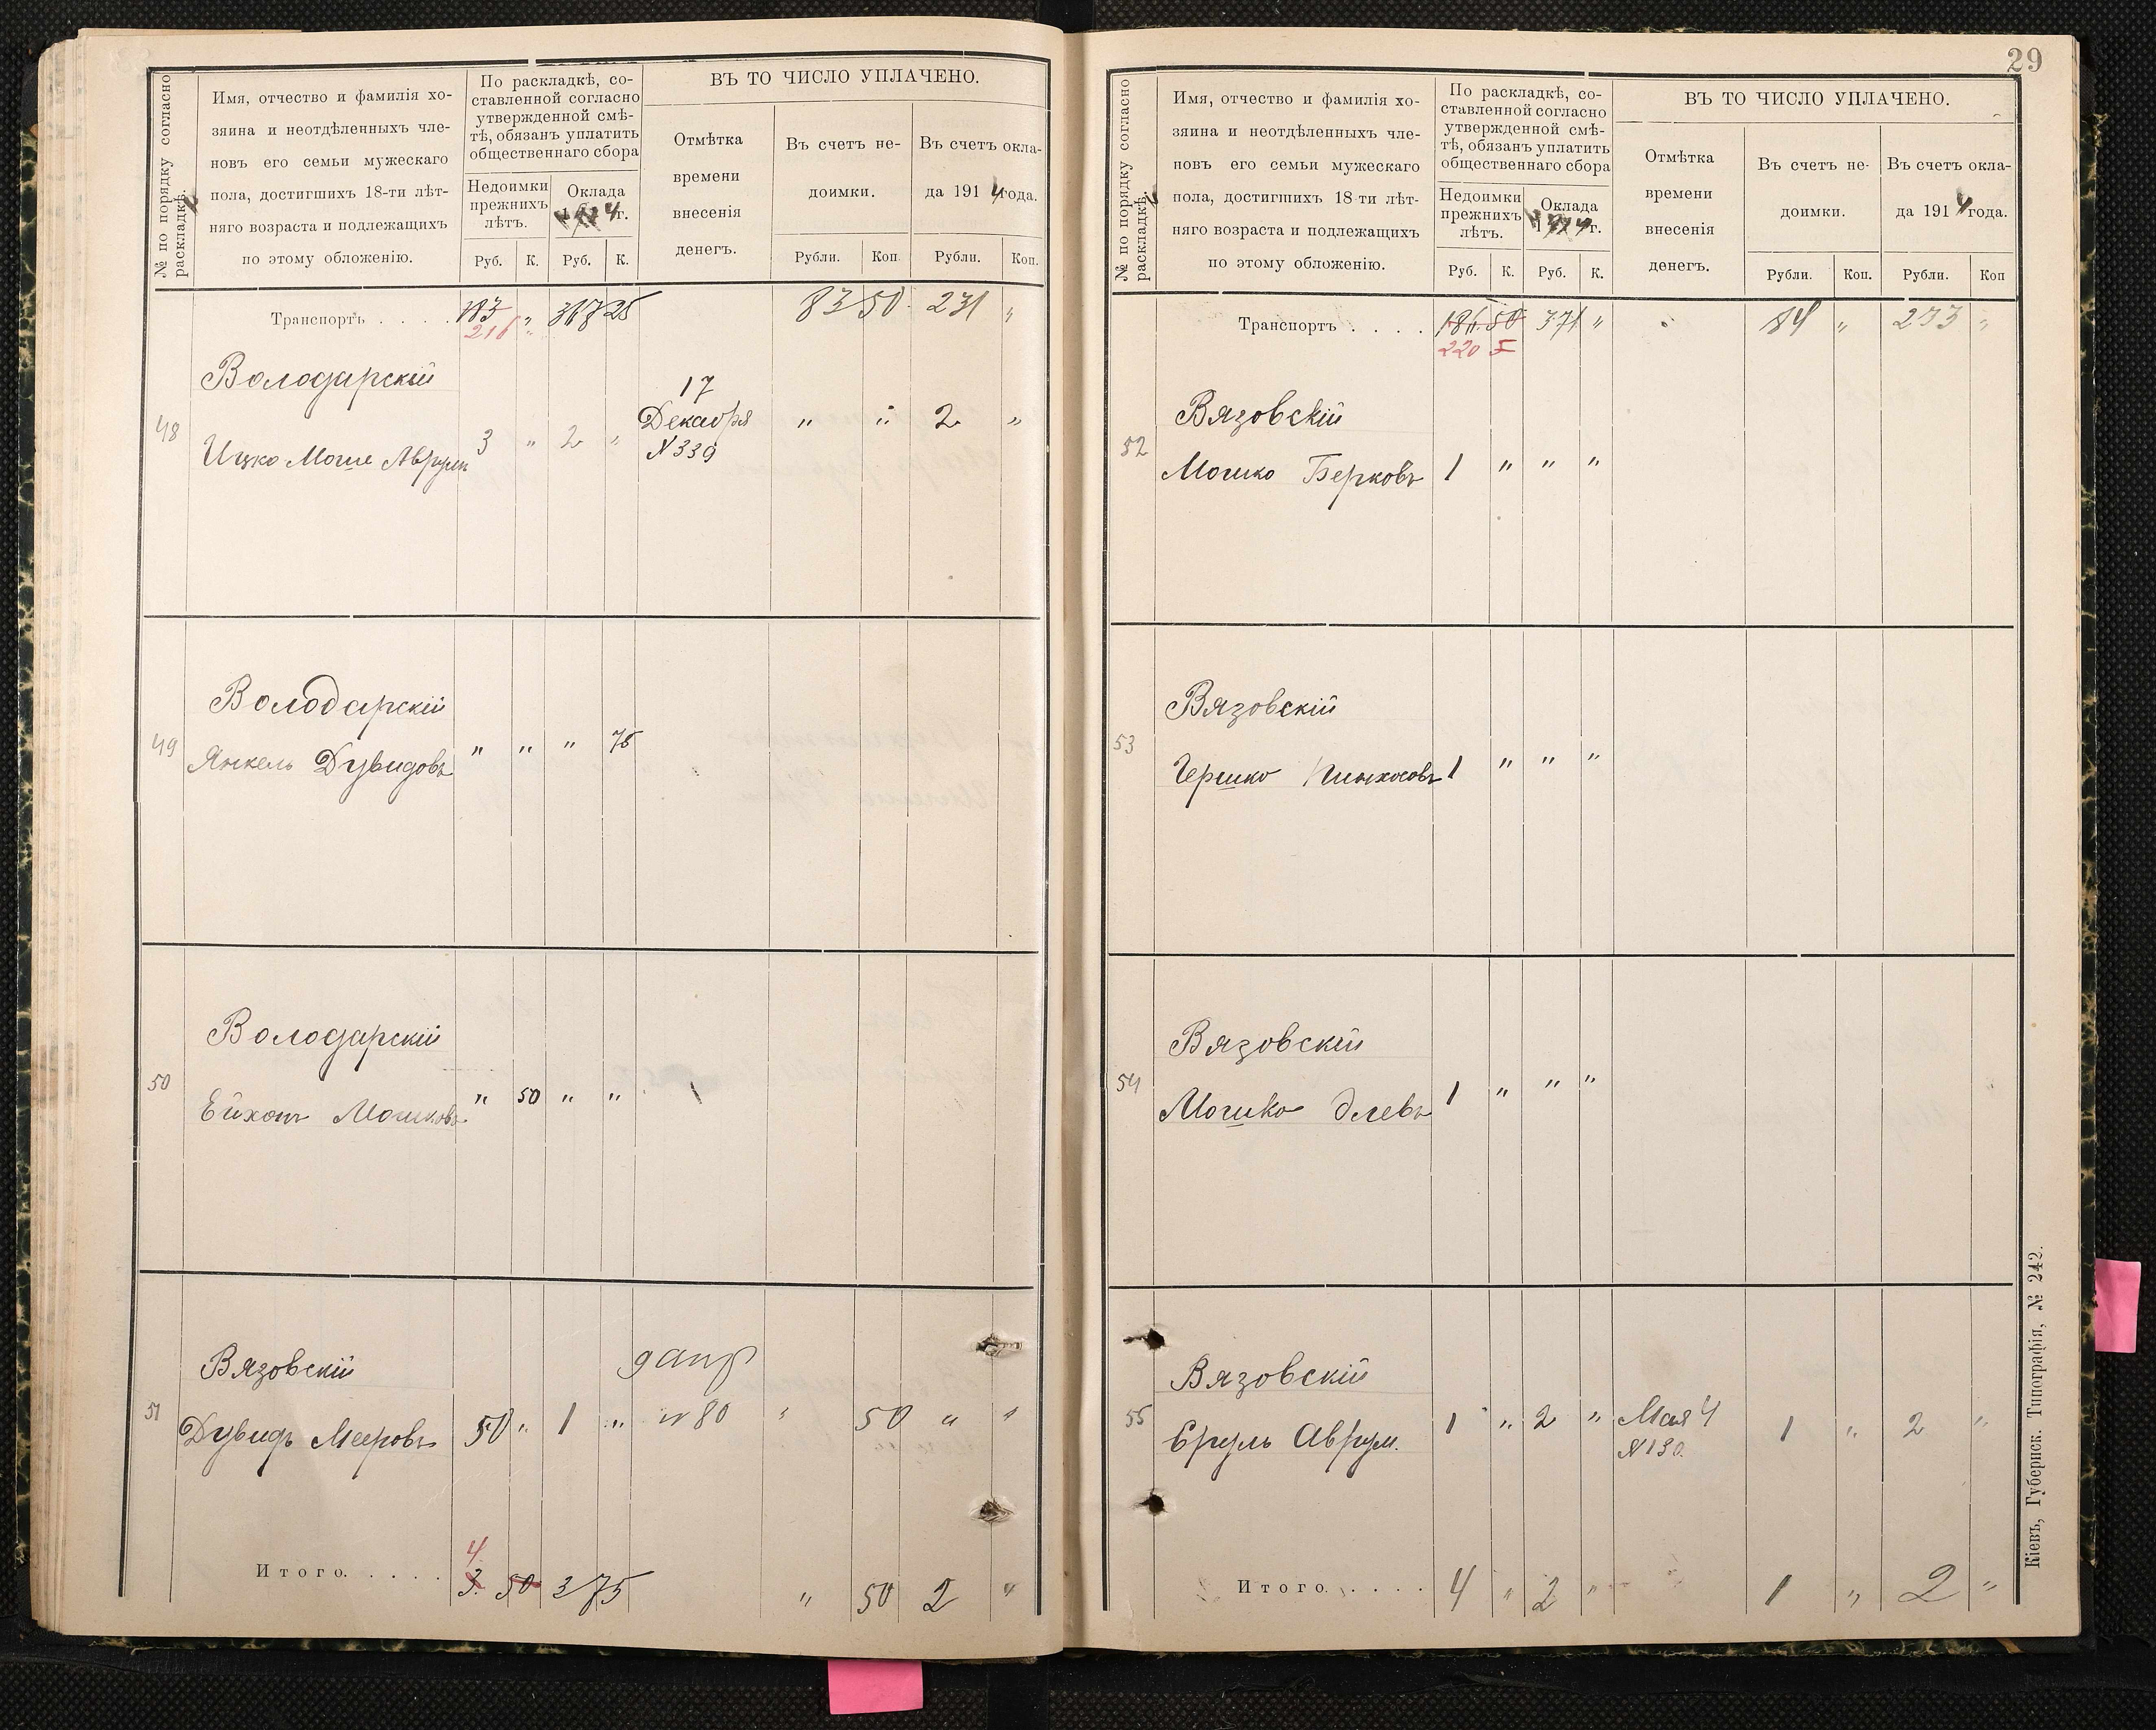 № по порядку согласно
раскладкѣ.
Имя, отчество и фамилія хо-
зяина и неотдѣленныхъ чле-
новъ его семьи мужескаго
пола, достигшихъ 18-ти лѣт-
няго возраста и подлежащихъ
по этому обложенію.
По раскладкѣ, со-
ставленной согласно
утвержденной смѣ-
тѣ, обязанъ уплатить
общественнаго сбора
Недоимки
прежнихъ
лѣтъ.
Оклада
1914 г.
Руб. К. Руб. К.
ВЪ ТО ЧИСЛО УПЛАЧЕНО.
Отмѣтка
времени
внесенія
денегъ.
Въ счетъ не-
доимки.
Въ счетъ окла-
да 1914 года.
Рубли. Коп. Рубли. Коп.
Транспортъ . . . . 183 " 367 25 83 50 231 "
216 "
Володарскій
48 Ицко Моше Аврум 3 " 2 " 17 Декабря N 339 " " 2 "
Володарскій
49 Янкель Дувидовъ " " " 75
Володарскій
50 Мошковъ " 50 " "
Вязовскій
51 Дувидъ Мееровъ 50 " 1 " 9 апр N 80 " 50 " "
4
Итого. . . . . 3. 50 3 75 " 50 2 "
29
№ по порядку согласно
раскладкѣ.
Имя, отчество и фамилія хо-
зяина и неотдѣленныхъ чле-
новъ его семьи мужескаго
пола, достигшихъ 18-ти лѣт-
няго возраста и подлежащихъ
по этому обложенію.
По раскладкѣ, со-
ставленной согласно
утвержденной смѣ-
тѣ, обязанъ уплатить
общественнаго сбора
Недоимки
прежнихъ
лѣтъ.
Оклада
1914 г.
Руб. К. Руб. К.
ВЪ ТО ЧИСЛО УПЛАЧЕНО.
Отмѣтка
времени
внесенія
денегъ.
Въ счетъ не-
доимки.
Въ счетъ окла-
да 1914 года.
Рубли. Коп. Рубли. Коп
Транспортъ . . . . 186. 50 371 " 84 " 233 "
220 5
Вязовскій
52 Мошко Берковъ 1 " " "
Вязовскій
53 Гершко Пинхосовъ 1 " " "
Вязовскій
54 Мошко Элевъ 1 " " "
Вязовскій
55 Сруль Аврум. 1 " 2 " Мая 4 N 130. 1 " 2 "
Итого. . . . . 4 " 2 " 1 " 2 "
Кіевъ, Губернск. Типографія, № 242.